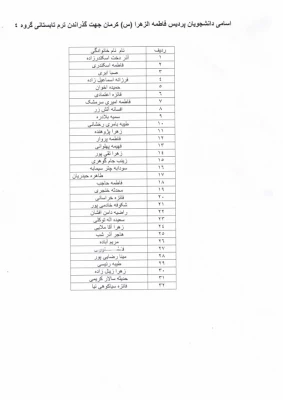 اسامی دانشجویان پردیس فاطمه الزهرا (س) کرمان جهت گذراندن ترم تابستانی گروه ٤
ردیف نام نام خانوادگی
١ آذر دخت اسکندرزاده
٢ فاطمه اسکندری
٣ صبا ابری
٤ فرزانه اسماعیل زاده
٥ حمیده اخوان
٦ فائزه اعتمادی
٧ فاطمه امیری سرمشک
٨ افسانه آتش زر
٩ سمیه بلادره
١٠ طیبه یاسری رخشانی
١١ زهرا پژوهنده
١٢ فاطمه پرواز
١٣ فهیمه پهلوانی
١٤ زهرا تقی پور
١٥ زینب جام گوهری
١٦ سودابه چتر سیمابه
١٧ طاهره حیدریان
١٨ فاطمه حاجب
١٩ محدثه خنجری
٢٠ فائزه خراسانی
٢١ شکوفه خادمی پور
٢٢ راضیه دامن افشان
٢٣ سعیده اله توکلی
٢٤ زهرا آقا ملایی
٢٥ هاجر آذر شب
٢٦ مریم آماده
٢٧
٢٨ مینا رضایی پور
٢٩ طیبه رئیسی
٣٠ زهرا زینل زاده
٣١ جمیله سالار کریمی
٣٢ فائزه سیاکوهی نیا